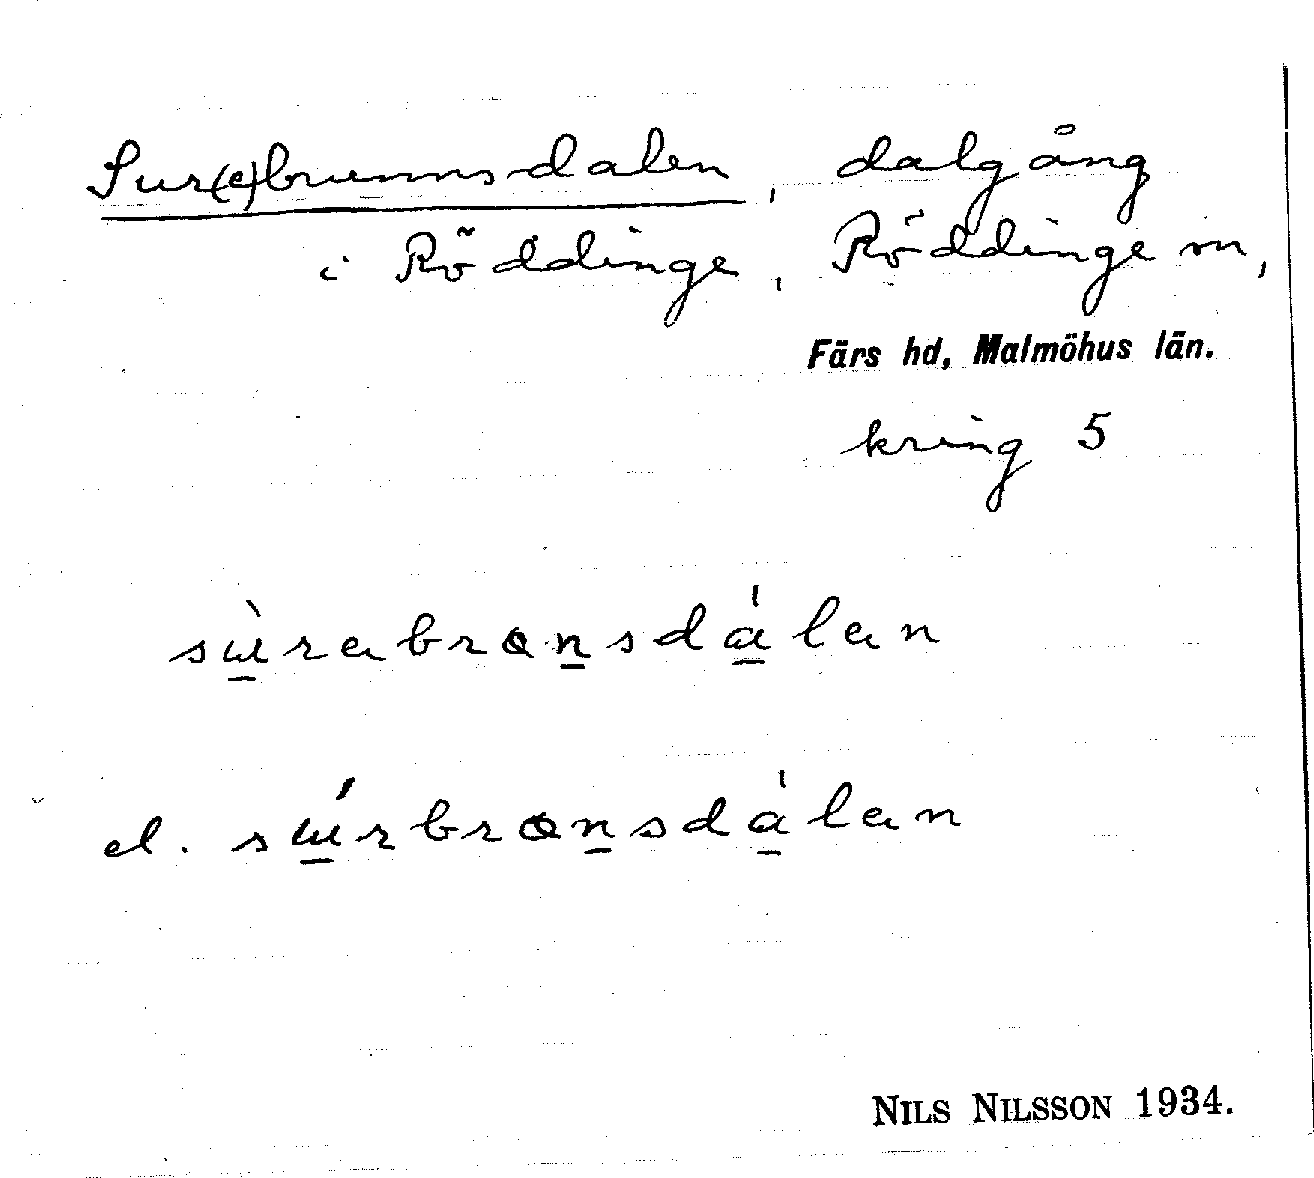 Sur(e)brunnsdalen, dalgång
i Röddinge, Röddinge sn,
Färs hd, Malmöhus län.
kring 5
sɯ̱̀rabrɑṉsdá̱lan
el. sɯ̱́rbrɑṉsdá̱lan
NILS NILSSON 1934.